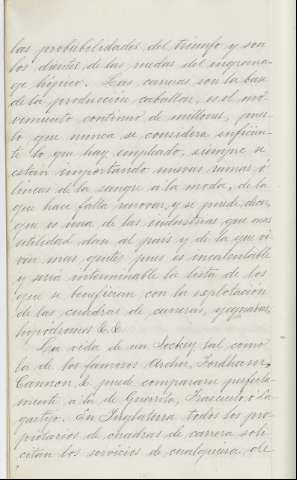 las probabilidades del triunfo y son
los dientes de las ruedas del engrana-
ge hípico. Las carreras son la base
de la producción caballar, es el mo-
vimiento contínuo de millones, pues
lo que nunca se considera suficien-
te lo que hay empleado, siempre se
están importando nuevas ramas ó
líneas de la sangre a la moda, de la
que hace falta renovar, y se puede decir,
que es una de las industrias que mas
utilidad dan al pais y de la que vi-
ven mas gentes pues es incalculable
y seria interminable la lista de los
que se benefician con la esplotación
de las cuadras de carreras, yeguadas,
hipodromos &. &.
La vida de un Jockey tal como
la de los famosos Archer, Fordham,
Cannon, & puede compararse perfecta-
mente a la de Guerrita, Frascuelo, ó La-
gartijo. En Inglaterra todos los pro-
pietarios de cuadras de carrera soli-
citan los servicios de cualquiera de